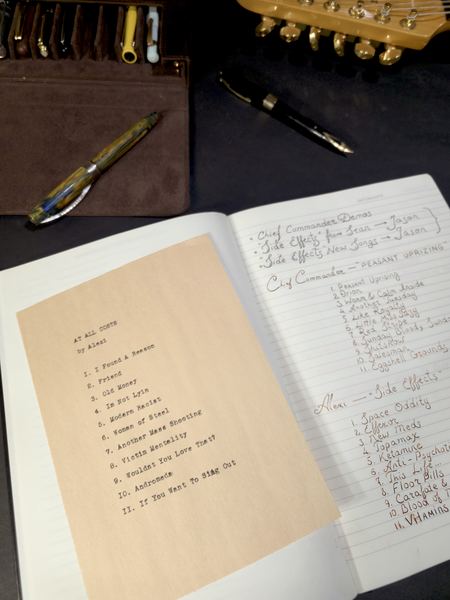 AT ALL COSTS
by Alexi
1. I Found A Reason
2. Friend
3. Old Money
4. Im Not Lyin
5. Modern Racist
6. Women of Steel
7. Another Mass Shooting
8. Victim Mentality
9. Wouldnt You Love That?
10. Andromeda
11. If You Want To Sing Out
• Chief Commander Demos
• "Side Effects" from Stan → Jason
• "Side Effects" New Songs → Jason
Chief Commander — "PEASANT UPRIZING"
1. Peasant Uprizing
2. Orion
3. Warm & Calm Inside
4. Another Tuesday
5. Like Royalty
6. Little Miss
7. Red Stripe
8. Sunday Bloody Sunday
9.
10. Salesman
11. Eggshell Grounds
Alexi — "Side Effects"
1. Space Oddity
2. Effexor
3. New Meds
4. Topamax
5. Ketamine
6. Anti-Psychotic
7. This Life...
8. Floor Bills
9. Carafate &
10. Blood of
11. VITAMINS